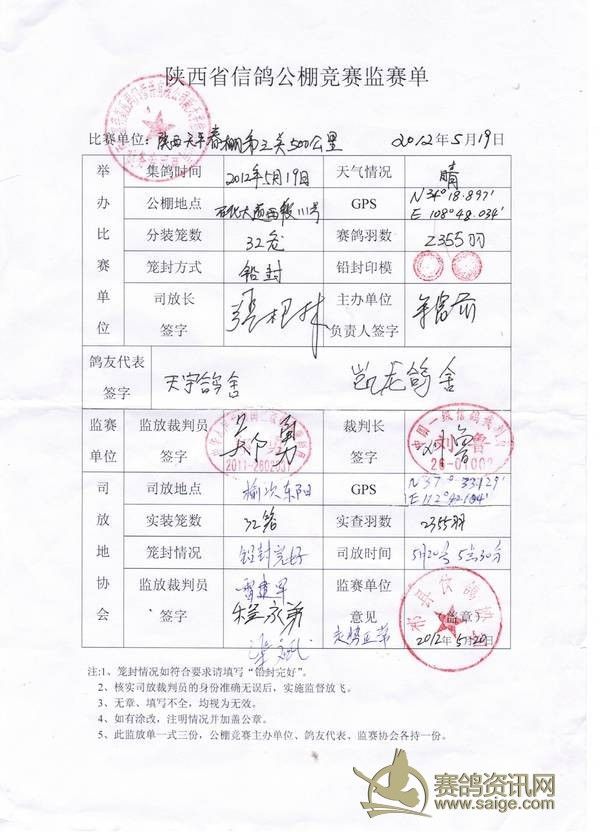 陕西省信鸽公棚竞赛监赛单
比赛单位：陕西天平春棚第三关500公里 2012年5月19日
举办比赛单位
集鸽时间 2012年5月19日 天气情况 晴
公棚地点 GPS N 34°18.897' E 108°48.034'
分装笼数 32笼 赛鸽羽数 2355羽
笼封方式 铅封 铅封印模
司放长签字 张根林 主办单位负责人签字
鸽友代表签字 天宇鸽舍 凯龙鸽舍
监赛单位 监放裁判员签字 2011-2602031 裁判长签字 刘鲁 26-01002
司放地协会
司放地点 榆次东阳 GPS N 37°33.129' E 112°42.104'
实装笼数 32笼 实查羽数 2355羽
笼封情况 铅封完好 司放时间 5月20号 5点30分
监放裁判员签字 雷建军 程永弟 监赛单位意见 (盖章) 2012年5月20日
注:1、笼封情况如符合要求请填写“铅封完好”。
2、核实司放裁判员的身份准确无误后，实施监督放飞。
3、无章、填写不全，均视为无效。
4、如有涂改，注明情况并加盖公章。
5、此监放单一式三份，公棚竞赛主办单位、鸽友代表、监赛协会各持一份。
赛鸽资讯网
www.saige.com